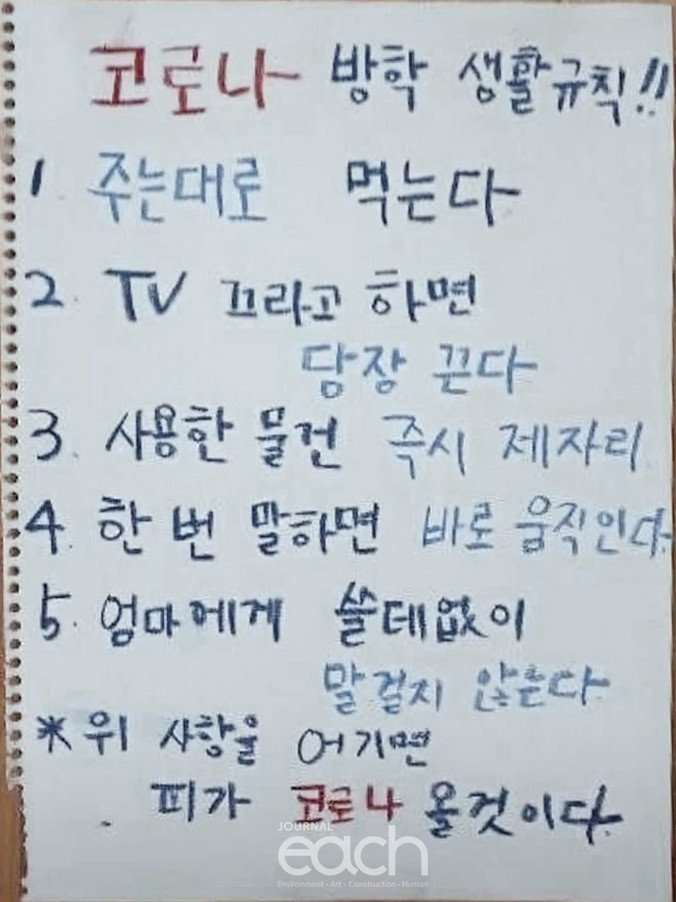 코로나 방학 생활규칙!!
1 주는대로 먹는다
2. TV 끄라고 하면
당장 끈다
3. 사용한 물건 즉시 제자리
4. 한 번 말하면 바로 움직인다.
5. 엄마에게 쓸데없이
말 걸지 않는다
* 위 사항을 어기면
피가 코로나 올것이다.
JOURNAL
each
Environment - Art - Construction - Human